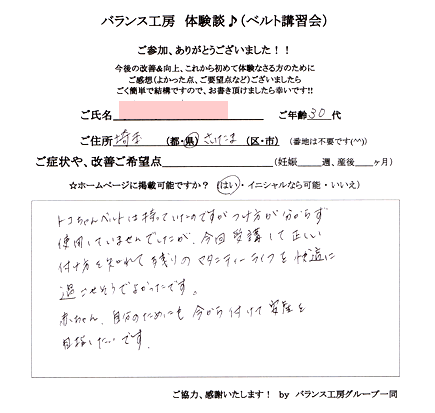 バランス工房 体験談♪(ベルト講習会)
ご参加、ありがとうございました！！
今後の改善&向上、これから初めて体験なさる方のために
ご感想(よかった点、ご要望点など)ございましたら
ごく簡単で結構ですので、お書き頂けましたら幸いです!!
ご氏名 ご年齢30代
ご住所埼玉(都・県)さいたま(区・市) (番地は不要です(^^))
ご症状や、改善ご希望点 (妊娠 週、産後 ヶ月)
☆ホームページに掲載可能ですか？ (はい・イニシャルなら可能・いいえ)
トコちゃんベルトは持っていたのですがつけ方が分からず
使用していませんでしたが、今回受講して正しい
付け方を知れて残りのマタニティーライフを快適に
過ごせそうでよかったです。
赤ちゃん、自分のためにも今から付けて安産を
目指したいです。
ご協力、感謝いたします！ by バランス工房グループ一同